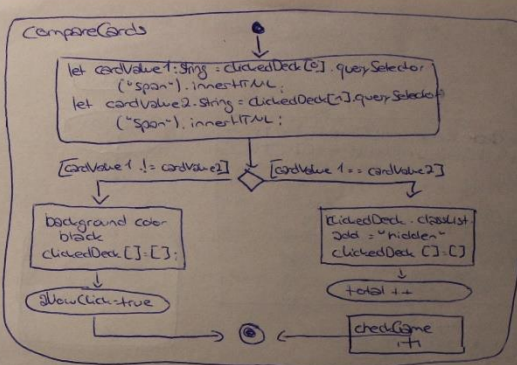 compareCards
let cardValue1:String = clickedDeck[0].querySelector
("span").innerHTML;
let cardValue2:String = clickedDeck[1].querySelector
("span").innerHTML;
[cardValue1 != cardValue2]
[cardValue1 == cardValue2]
background color
black
clickedDeck []=[];
allowClick=true
clickedDeck.classList.
add = "hidden"
clickedDeck []=[]
total ++
checkGame